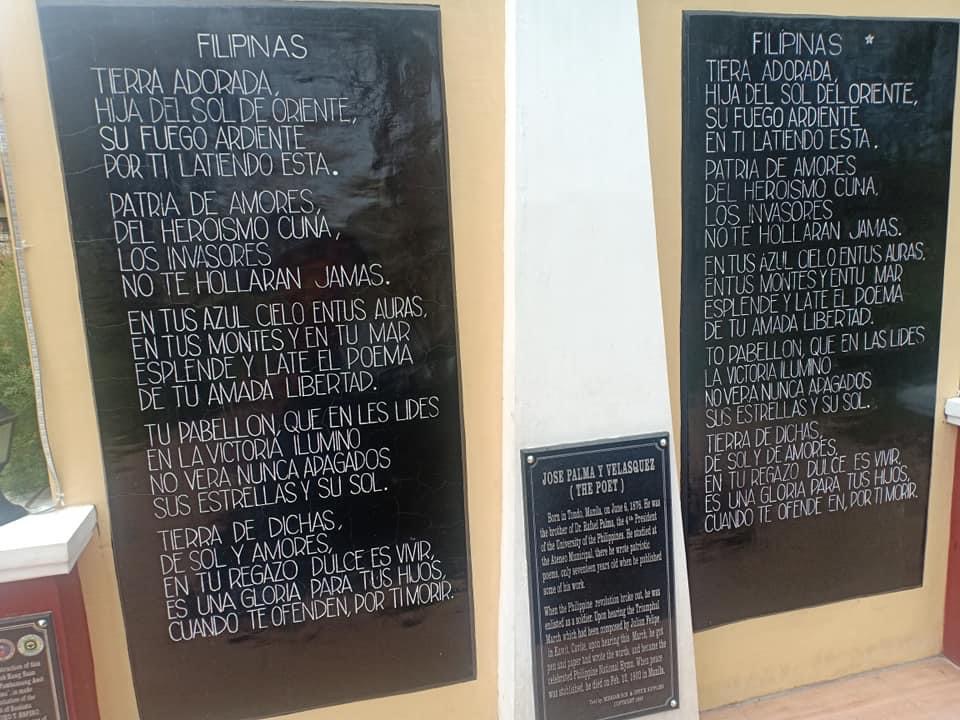 FILIPINAS
TIERRA ADORADA,
HIJA DEL SOL DE ORIENTE,
SU FUEGO ARDIENTE
POR TI LATIENDO ESTA.
PATRIA DE AMORES,
DEL HEROISMO CUNA,
LOS INVASORES
NO TE HOLLARAN JAMAS.
EN TUS AZUL CIELO ENTUS AURAS,
EN TUS MONTES Y EN TU MAR
ESPLENDE Y LATE EL POEMA
DE TU AMADA LIBERTAD.
TU PABELLON, QUE EN LES LIDES
EN LA VICTORIA ILUMINO
NO VERA NUNCA APAGADOS
SUS ESTRELLAS Y SU SOL.
TIERRA DE DICHAS,
DE SOL Y AMORES,
EN TU REGAZO DULCE ES VIVIR,
ES UNA GLORIA PARA TUS HIJOS,
CUANDO TE OFENDEN, POR TI MORIR.
JOSE PALMA Y VELASQUEZ
( THE POET )
Born in Tondo, Manila, on June 6, 1876. He was
the brother of Dr. Rafael Palma, the 4th President
of the University of the Philippines. He studied at
the Ateneo Municipal, there he wrote patriotic
poems, only seventeen years old when he published
some of his work.
When the Philippine revolution broke out, he was
enlisted as a soldier. Upon hearing the Triumphal
March which had been composed by Julian Felipe
in Kawit, Cavite, upon hearing this March, he got
pen and paper and wrote the words, and became the
celebrated Philippine National Hymn. When peace
was established, he died on Feb. 12, 1903 in Manila.
FILIPINAS *
TIERA ADORADA,
HIJA DEL SOL DEL ORIENTE,
SU FUEGO ARDIENTE
EN TI LATIENDO ESTA.
PATRIA DE AMORES
DEL HEROISMO CUNA,
LOS INVASORES
NO TE HOLLARAN JAMAS.
EN TUS AZUL CIELO ENTUS AURAS,
ENTUS MONTES Y ENTU MAR
ESPLENDE Y LATE EL POEMA
DE TU AMADA LIBERTAD.
TO PABELLON, QUE EN LAS LIDES
LA VICTORIA ILUMINO
NO VERA NUNCA APAGADOS
SUS ESTRELLAS Y SU SOL.
TIERRA DE DICHAS,
DE SOL Y DE AMORES,
EN TU REGAZO DULCE ES VIVIR,
ES UNA GLORIA PARA TUS HIJOS,
CUANDO TE OFENDE EN, POR TI MORIR.